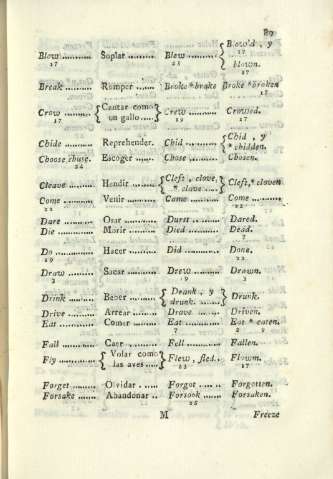 89
Blow ........ Soplar ........ Blew ........ { Blow'd , y
17 21 17
blown.
17
Break ........ Romper ........ Broke * brake Broke * broken
Crow ........ { Cantar como } Crew ........ Crowed.
17 un gallo ..... 19 17
Chide ........ Reprehender. Chid ........ { Chid , y
* chidden.
Choose chuse. Escoger ...... Chose ........ Chosen.
24
Cleave ........ Hendir ........ { Cleft , clove, } Cleft, * cloven
* clave .....
Come ........ Venir ........ Came ........ Come ........
22 22
Dare ........ Osar ........ Durst ........ Dared.
Die ........ Morir ........ Died ........ Dead.
7
Do ........ Hacer ........ Did ........ Done.
19 22
Draw ........ Sacar ........ Drew ........ Drawn.
3 19 3
Drink ........ Beber ........ { Drank , y } Drunk.
drunk. .......
Drive ........ Arrear ........ Drove ........ Driven.
Eat ........ Comer ........ Eat ........ Eat * eaten.
7
Fall ........ Caer ........ Fell ........ Fallen.
Fly ........ { Volar como } Flew , fled.. Flown.
las aves ..... 17
Forget ........ Olvidar ...... Forgot ...... Forgotten.
Forsake ........ Abandonar .. Forsook ...... Forsaken.
M Freeze